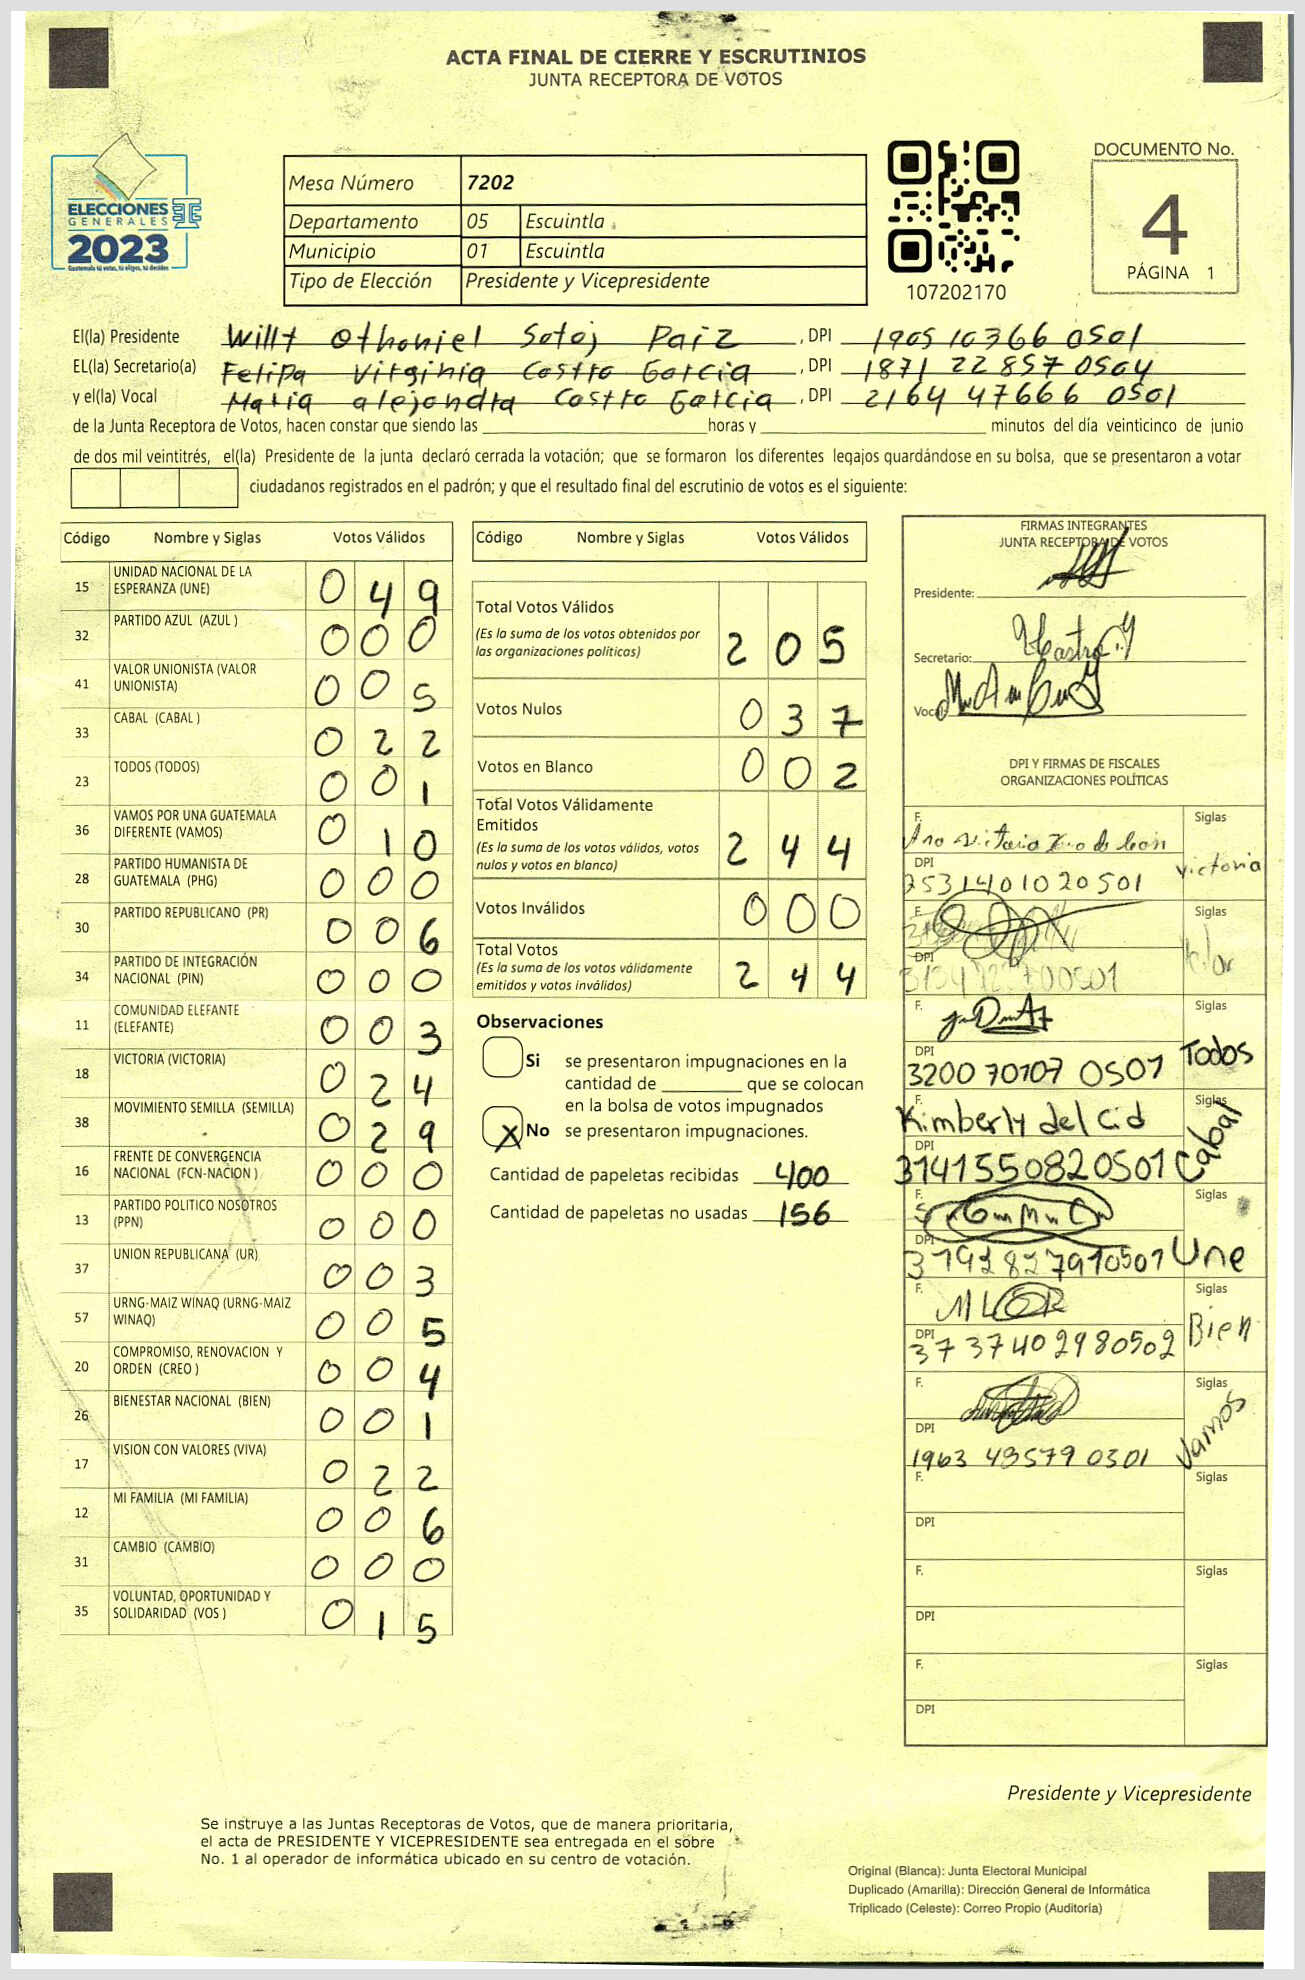 ACTA FINAL DE CIERRE Y ESCRUTINIOS
JUNTA RECEPTORA DE VOTOS
ELECCIONES
GENERALES
2023
Guatemala tú votas, tú eliges, tú decides
Mesa Número 7202
Departamento 05 Escuintla
Municipio 01 Escuintla
Tipo de Elección Presidente y Vicepresidente
107202170
DOCUMENTO No.
4
PÁGINA 1
El(la) Presidente Willy Othoniel Sotoj Paiz, DPI 1905 10366 0501
EL(la) Secretario(a) Felipa Virginia Castro Garcia, DPI 1871 22857 0504
y el(la) Vocal Maria alejandra Castro Garcia, DPI 2164 47666 0501
de la Junta Receptora de Votos, hacen constar que siendo las horas y minutos del día veinticinco de junio
de dos mil veintitrés, el(la) Presidente de la junta declaró cerrada la votación; que se formaron los diferentes legajos guardándose en su bolsa, que se presentaron a votar
ciudadanos registrados en el padrón; y que el resultado final del escrutinio de votos es el siguiente:
Código Nombre y Siglas Votos Válidos
15 UNIDAD NACIONAL DE LA ESPERANZA (UNE) 0 4 9
32 PARTIDO AZUL (AZUL ) 0 0 0
41 VALOR UNIONISTA (VALOR UNIONISTA) 0 0 5
33 CABAL (CABAL ) 0 2 2
23 TODOS (TODOS) 0 0 1
36 VAMOS POR UNA GUATEMALA DIFERENTE (VAMOS) 0 1 0
28 PARTIDO HUMANISTA DE GUATEMALA (PHG) 0 0 0
30 PARTIDO REPUBLICANO (PR) 0 0 6
34 PARTIDO DE INTEGRACIÓN NACIONAL (PIN) 0 0 0
11 COMUNIDAD ELEFANTE (ELEFANTE) 0 0 3
18 VICTORIA (VICTORIA) 0 2 4
38 MOVIMIENTO SEMILLA (SEMILLA) 0 2 9
16 FRENTE DE CONVERGENCIA NACIONAL (FCN-NACION ) 0 0 0
13 PARTIDO POLITICO NOSOTROS (PPN) 0 0 0
37 UNION REPUBLICANA (UR) 0 0 3
57 URNG-MAIZ WINAQ (URNG-MAIZ WINAQ) 0 0 5
20 COMPROMISO, RENOVACION Y ORDEN (CREO ) 0 0 4
26 BIENESTAR NACIONAL (BIEN) 0 0 1
17 VISION CON VALORES (VIVA) 0 2 2
12 MI FAMILIA (MI FAMILIA) 0 0 6
31 CAMBIO (CAMBIO) 0 0 0
35 VOLUNTAD, OPORTUNIDAD Y SOLIDARIDAD (VOS ) 0 1 5
Código Nombre y Siglas Votos Válidos
Total Votos Válidos 2 0 5
(Es la suma de los votos obtenidos por
las organizaciones políticas)
Votos Nulos 0 3 7
Votos en Blanco 0 0 2
Total Votos Válidamente
Emitidos 2 4 4
(Es la suma de los votos válidos, votos
nulos y votos en blanco)
Votos Inválidos 0 0 0
Total Votos 2 4 4
(Es la suma de los votos válidamente
emitidos y votos inválidos)
Observaciones
Si se presentaron impugnaciones en la
cantidad de que se colocan
en la bolsa de votos impugnados
X No se presentaron impugnaciones.
Cantidad de papeletas recibidas 400
Cantidad de papeletas no usadas 156
FIRMAS INTEGRANTES
JUNTA RECEPTORA DE VOTOS
Presidente:
Secretario:
Vocal
DPI Y FIRMAS DE FISCALES
ORGANIZACIONES POLÍTICAS
F. Siglas
DPI victoria
2531401020501
F. Siglas
DPI
F. Siglas
DPI Todos
3200 70107 0501
F. Kimberly del Cid Siglas
DPI Cabal
3141550820501
F. Siglas
DPI Une
F. Siglas
DPI Bien
3737402980502
F. Siglas
DPI Vamos
1963 48579 0301
F. Siglas
DPI
F. Siglas
DPI
F. Siglas
DPI
Presidente y Vicepresidente
Se instruye a las Juntas Receptoras de Votos, que de manera prioritaria,
el acta de PRESIDENTE Y VICEPRESIDENTE sea entregada en el sobre
No. 1 al operador de informática ubicado en su centro de votación.
Original (Blanca): Junta Electoral Municipal
Duplicado (Amarilla): Dirección General de Informática
Triplicado (Celeste): Correo Propio (Auditoría)